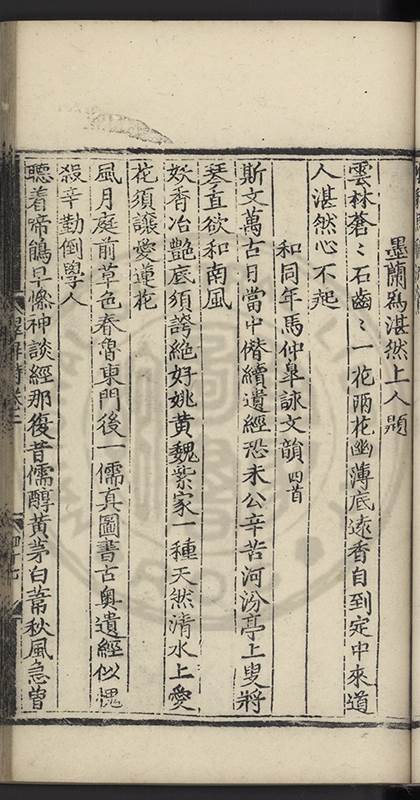 墨蘭為湛然上人題
雲林蒼〻石齒〻一花兩花幽薄底遠香自到定中來道
人湛然心不起
和同年馬仲皐詠文韻四首
斯文萬古日當中僭續遺經恐未公辛苦河汾亭上叟將
琴直欲和南風
妖香冶艷底須誇絶好姚黃魏紫家一種天然清水上愛
花須讓愛蓮花
風月庭前草色春魯東門後一儒真圖書古奧遺經似愧
殺辛勤倒學人
聽着啼鵑早慘神談經那復昔儒醇黃茅白葦秋風急曾